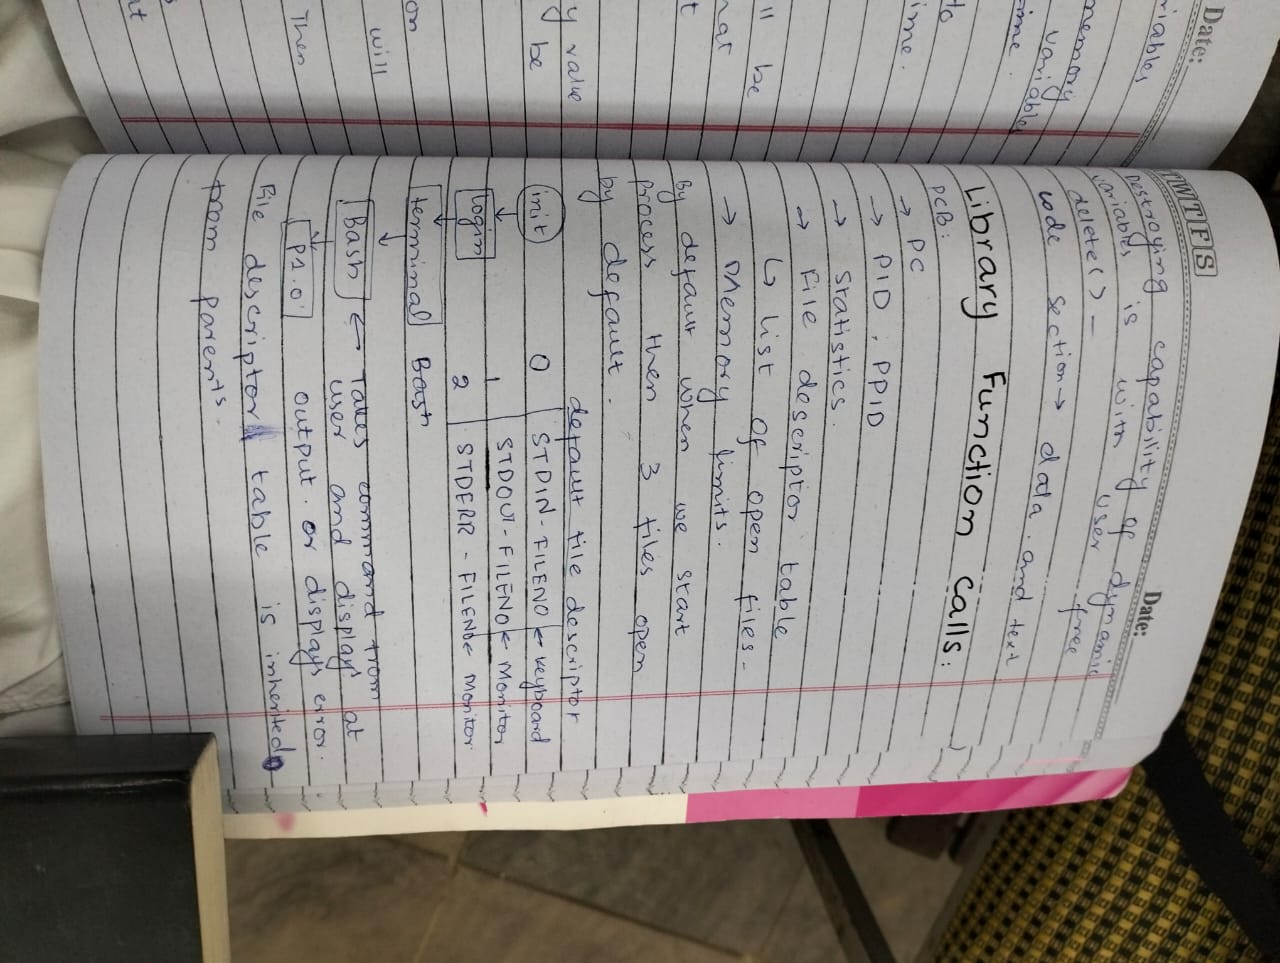 T W T F S
Date:
Destroying capability of dynamic
variables is with user free
delete() -
code section → data and text
Library Function calls:
PCB:
→ PC
→ PID, PPID
→ Statistics.
→ File descriptor table
↳ List of open files.
→ Memory limits.
By default when we start
process then 3 files open
by default.
default file descriptor
init 0 STDIN-FILENO ← keyboard
1 STDOUT-FILENO ← Monitor
Login 2 STDERR-FILENO ← Monitor
terminal Bash
Bash ← Takes command from
user and display at
output or displays error.
File descriptor table is inherited
from parents.
Date:
memory
variable
ll be
y value
be
on
will
Then